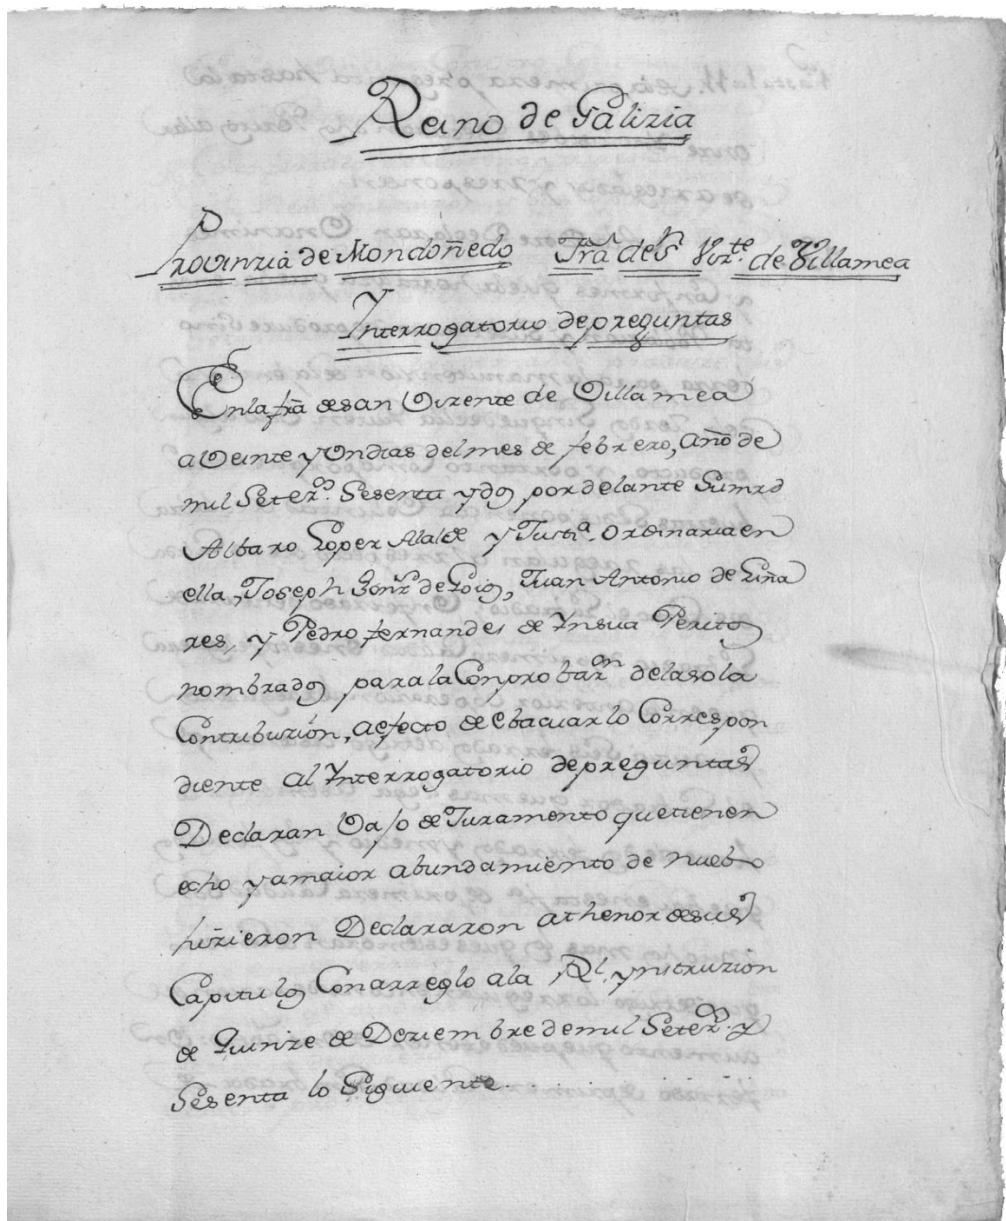 Reino de Galizia
Provinzia de Mondoñedo Frâ de Sn Vizte. de Villamea
Ynterrogatorio de preguntas
En la frã de san Vizente de Villamea
a Veinte y Un dias del mes de febrero, año de
mil Setezos. Sesenta y dos por delante Su mrd
Albaro Lopez Alalde y Justia. ordinaria en
ella, Joseph Gonz de Goios, Juan Antonio de Liña
res, y Pedro fernandes de Ynsua Peritos
nombrados para la Conprobazon de la sola
Contribuzión, a efecto de Ebacuar lo Correspon
diente al Ynterrogatorio de preguntas
Declaran Vajo de Juramento que tienen
echo y a maior abundamiento de nuebo
hizieron Declararon a thenor de sus
Capitulos Con arreglo a la Rl. ynstruzion
de Quinze de Deziembre de mil Setezos. y
Sesenta lo Siguiente.